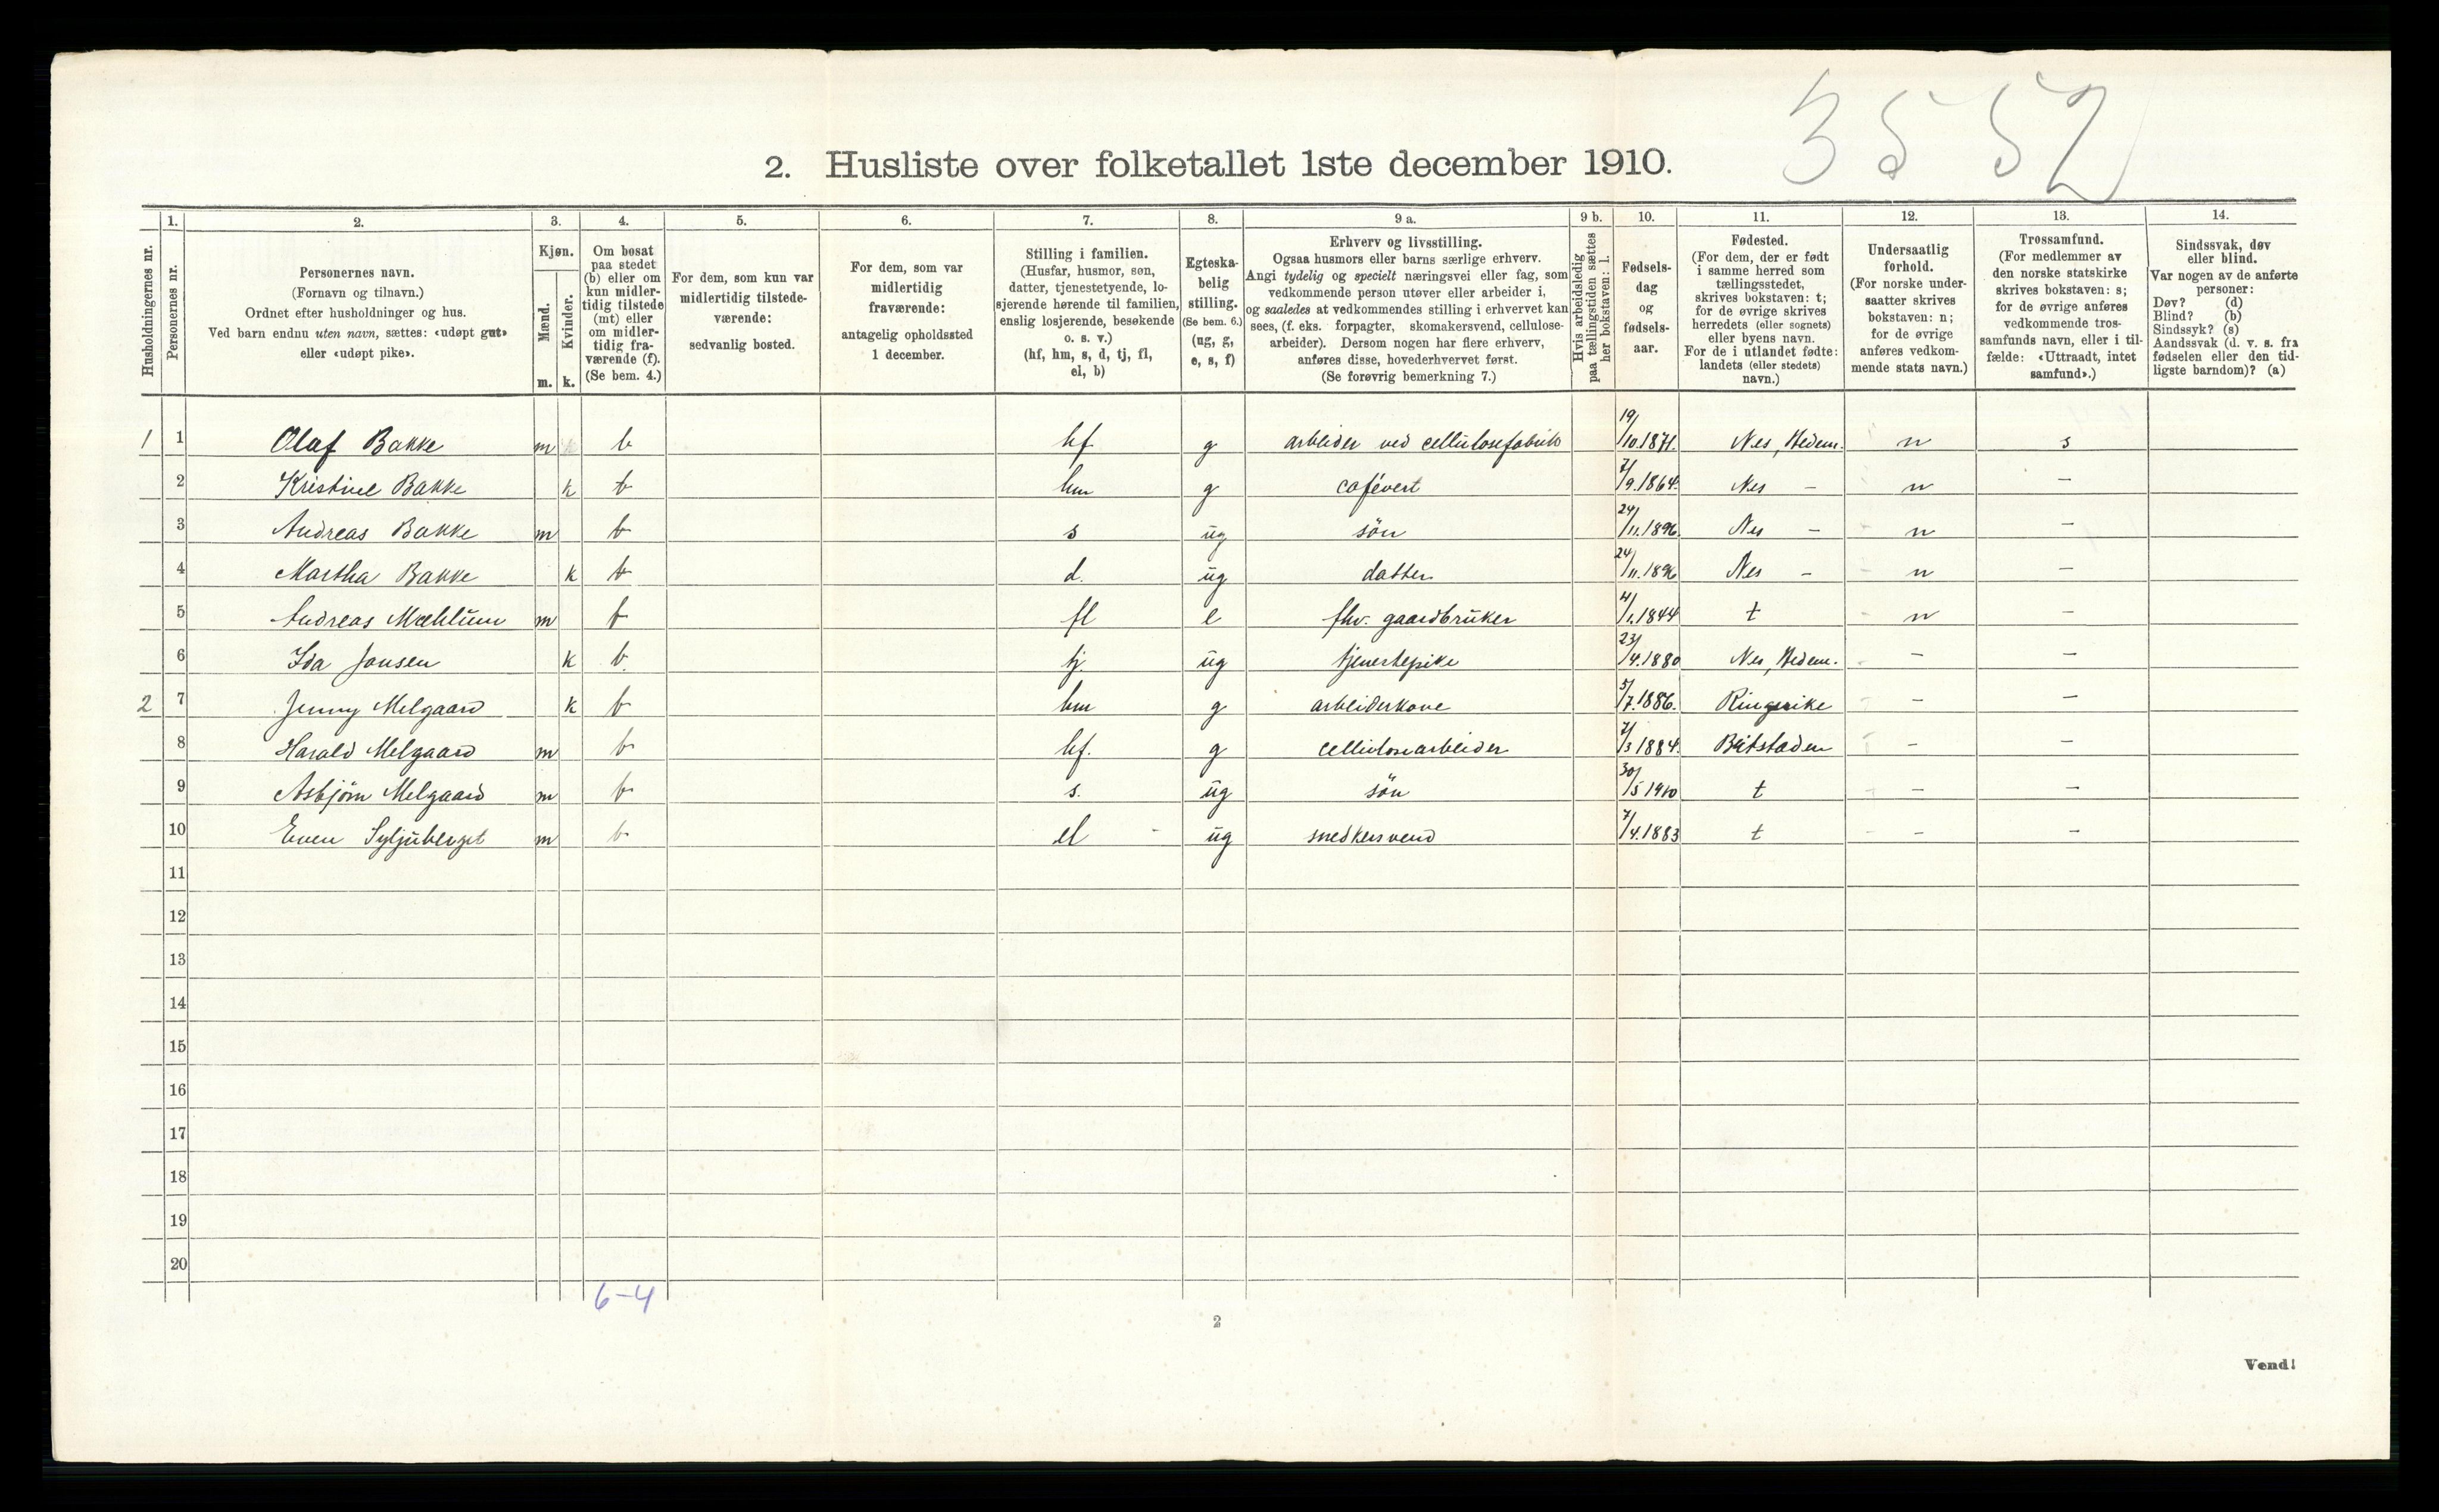 3552
2. Husliste over folketallet 1ste december 1910.
Husholdningernes nr.
1.
Personernes nr.
2.
Personernes navn.
(Fornavn og tilnavn.)
Ordnet efter husholdninger og hus.
Ved barn endnu uten navn, sættes: «udøpt gut»
eller «udøpt pike».
3.
Kjøn.
Mænd.
Kvinder.
m. k.
4.
Om bosat
paa stedet
(b) eller om
kun midler-
tidig tilstede
(mt) eller
om midler-
tidig fra-
værende (f).
(Se bem. 4.)
5.
For dem, som kun var
midlertidig tilstede-
værende:
sedvanlig bosted.
6.
For dem, som var
midlertidig
fraværende:
antagelig opholdssted
1 december.
7.
Stilling i familien.
(Husfar, husmor, søn,
datter, tjenestetyende, lo-
sjerende hørende til familien,
enslig losjerende, besøkende
o. s. v.)
(hf, hm, s, d, tj, fl,
el, b)
8.
Egteska-
belig
stilling.
(Se bem. 6.)
(ug, g,
e, s, f)
9 a.
Erhverv og livsstilling.
Ogsaa husmors eller barns særlige erhverv.
Angi tydelig og specielt næringsvei eller fag, som
vedkommende person utøver eller arbeider i,
og saaledes at vedkommendes stilling i erhvervet kan
sees, (f. eks. forpagter, skomakersvend, cellulose-
arbeider). Dersom nogen har flere erhverv,
anføres disse, hovederhvervet først.
(Se forøvrig bemerkning 7.)
9 b.
Hvis arbeidsledig
paa tællingstiden sættes
her bokstaven: l.
10.
Fødsels-
dag
og
fødsels-
aar.
11.
Fødested.
(For dem, der er født
i samme herred som
tællingsstedet,
skrives bokstaven: t;
for de øvrige skrives
herredets (eller sognets)
eller byens navn.
For de i utlandet fødte:
landets (eller stedets)
navn.)
12.
Undersaatlig
forhold.
(For norske under-
saatter skrives
bokstaven: n;
for de øvrige
anføres vedkom-
mende stats navn.)
13.
Trossamfund.
(For medlemmer av
den norske statskirke
skrives bokstaven: s;
for de øvrige anføres
vedkommende tros-
samfunds navn, eller i til-
fælde: «Uttraadt, intet
samfund».)
14.
Sindssvak, døv
eller blind.
Var nogen av de anførte
personer:
Døv? (d)
Blind? (b)
Sindssyk? (s)
Aandssvak (d. v. s. fra
fødselen eller den tid-
ligste barndom)? (a)
1 1 Olaf Bakke m b hf g arbeider ved cellulosefabrik 19/10.1871. Nes, Hedem. n s
2 Kristine Bakke k b hm g cafévert 7/9.1864. Nes – n –
3 Andreas Bakke m b s ug søn 24/11.1896. Nes – n –
4 Martha Bakke k b d. ug datter 24/11.1896 Nes – n –
5 Andreas Mæhlum m b fl e fhv. gaardbruker 4/1.1844 t n –
6 Ida Jonsen k b. tj. ug tjenestepike 23/4.1880 Nes, Hedem. – –
2 7 Jenny Melgaard k b hm g arbeiderkone 5/7.1886. Ringerike – –
8 Harald Melgaard m b hf. g cellulosearbeider 7/3 1884. Beitstaden – –
9 Asbjørn Melgaard m b s. ug søn 30/5 1910 t – –
10 Even Syljuberget m b el ug snedkersvend 7/4.1883 t – –
11
12
13
14
15
16
17
18
19
20
6–4
2
Vend!